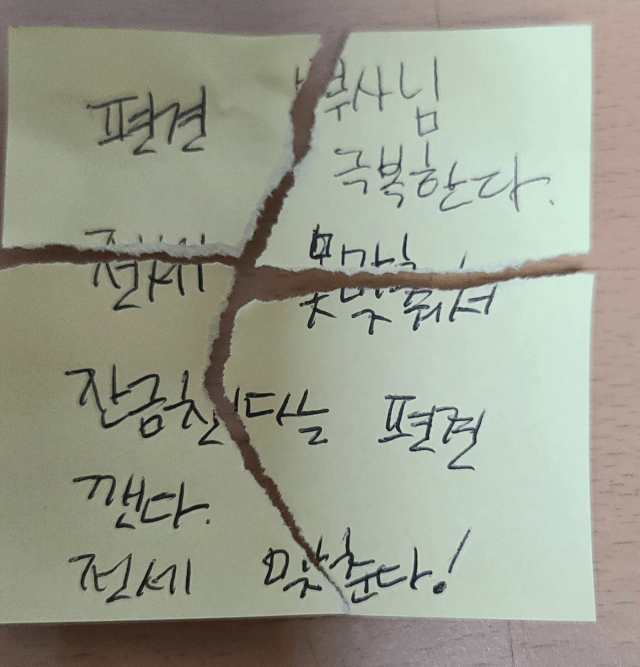 편견 부사님
극복한다.
전세 못 맞춰서
잔금친다는 편견
깬다.
전세 맞춘다!